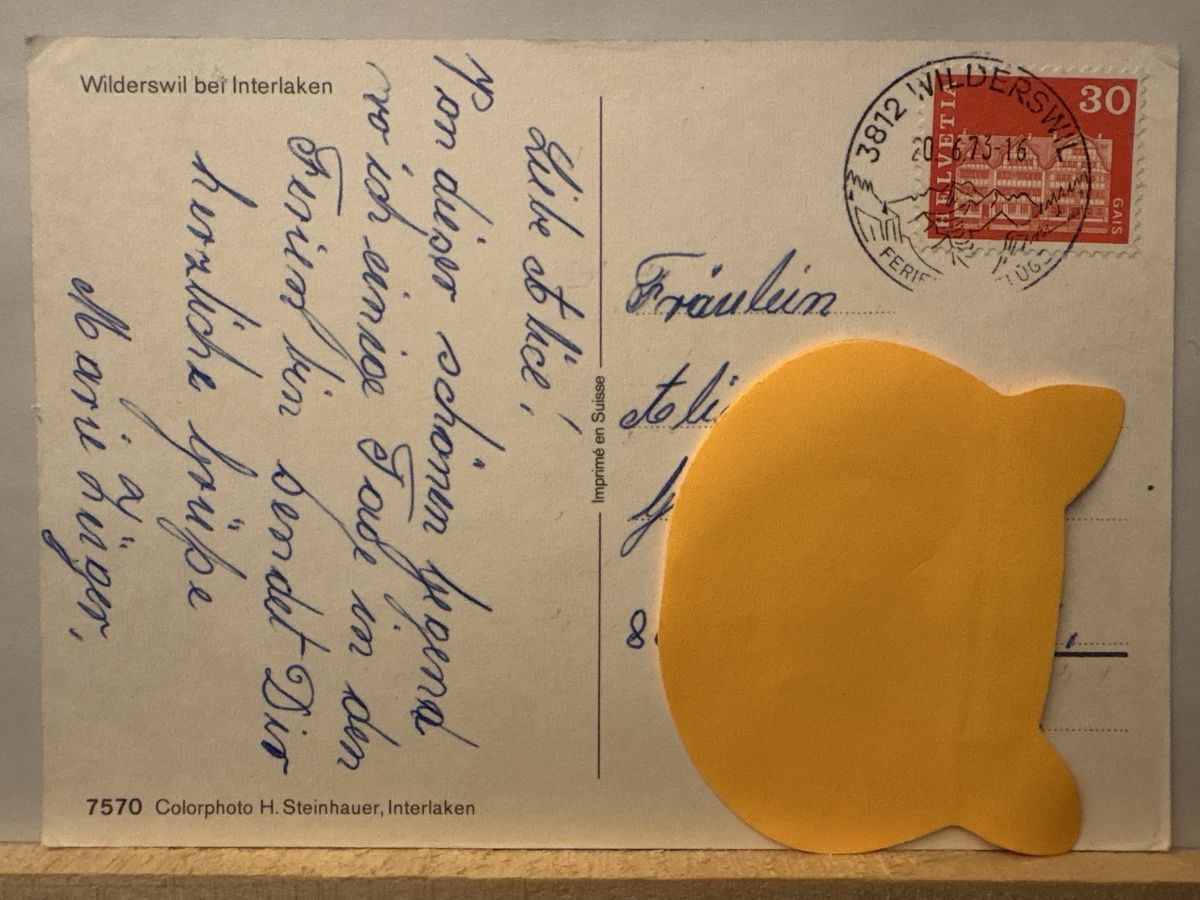 Wilderswil bei Interlaken
Liebe Alice!
Von dieser schönen Gegend
wo ich einige Tage in den
Ferien bin sendet Dir
herzliche Grüße
Marie
7570 Colorphoto H. Steinhauer, Interlaken
Imprimé en Suisse
3812 WILDERSWIL
20. 6.73-16
FERIE
HELVETIA
30
GAIS
Fräulein
Ali